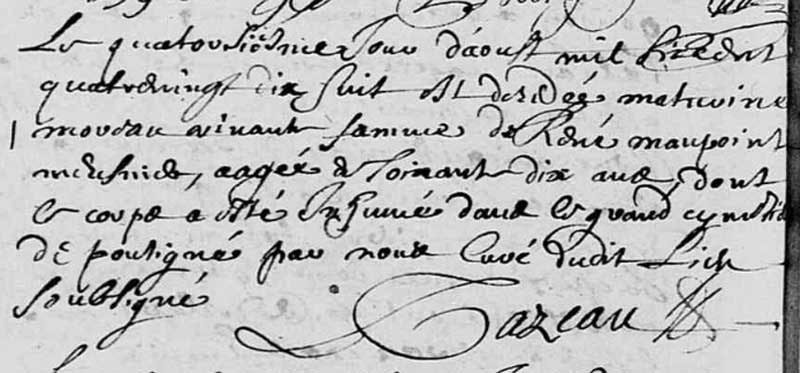 Le quatorsiesme Jour d'aoust mil six cent
quatrevingt dix huit est decedée maturine
moreau vivante famme de René maupoint
meusnier, aagée de soixante dix ans, dont
le corps a esté inhumé dans le grand cymetie
de pouligné par nous curé dudit Lieu
soubsigné
Tazeau